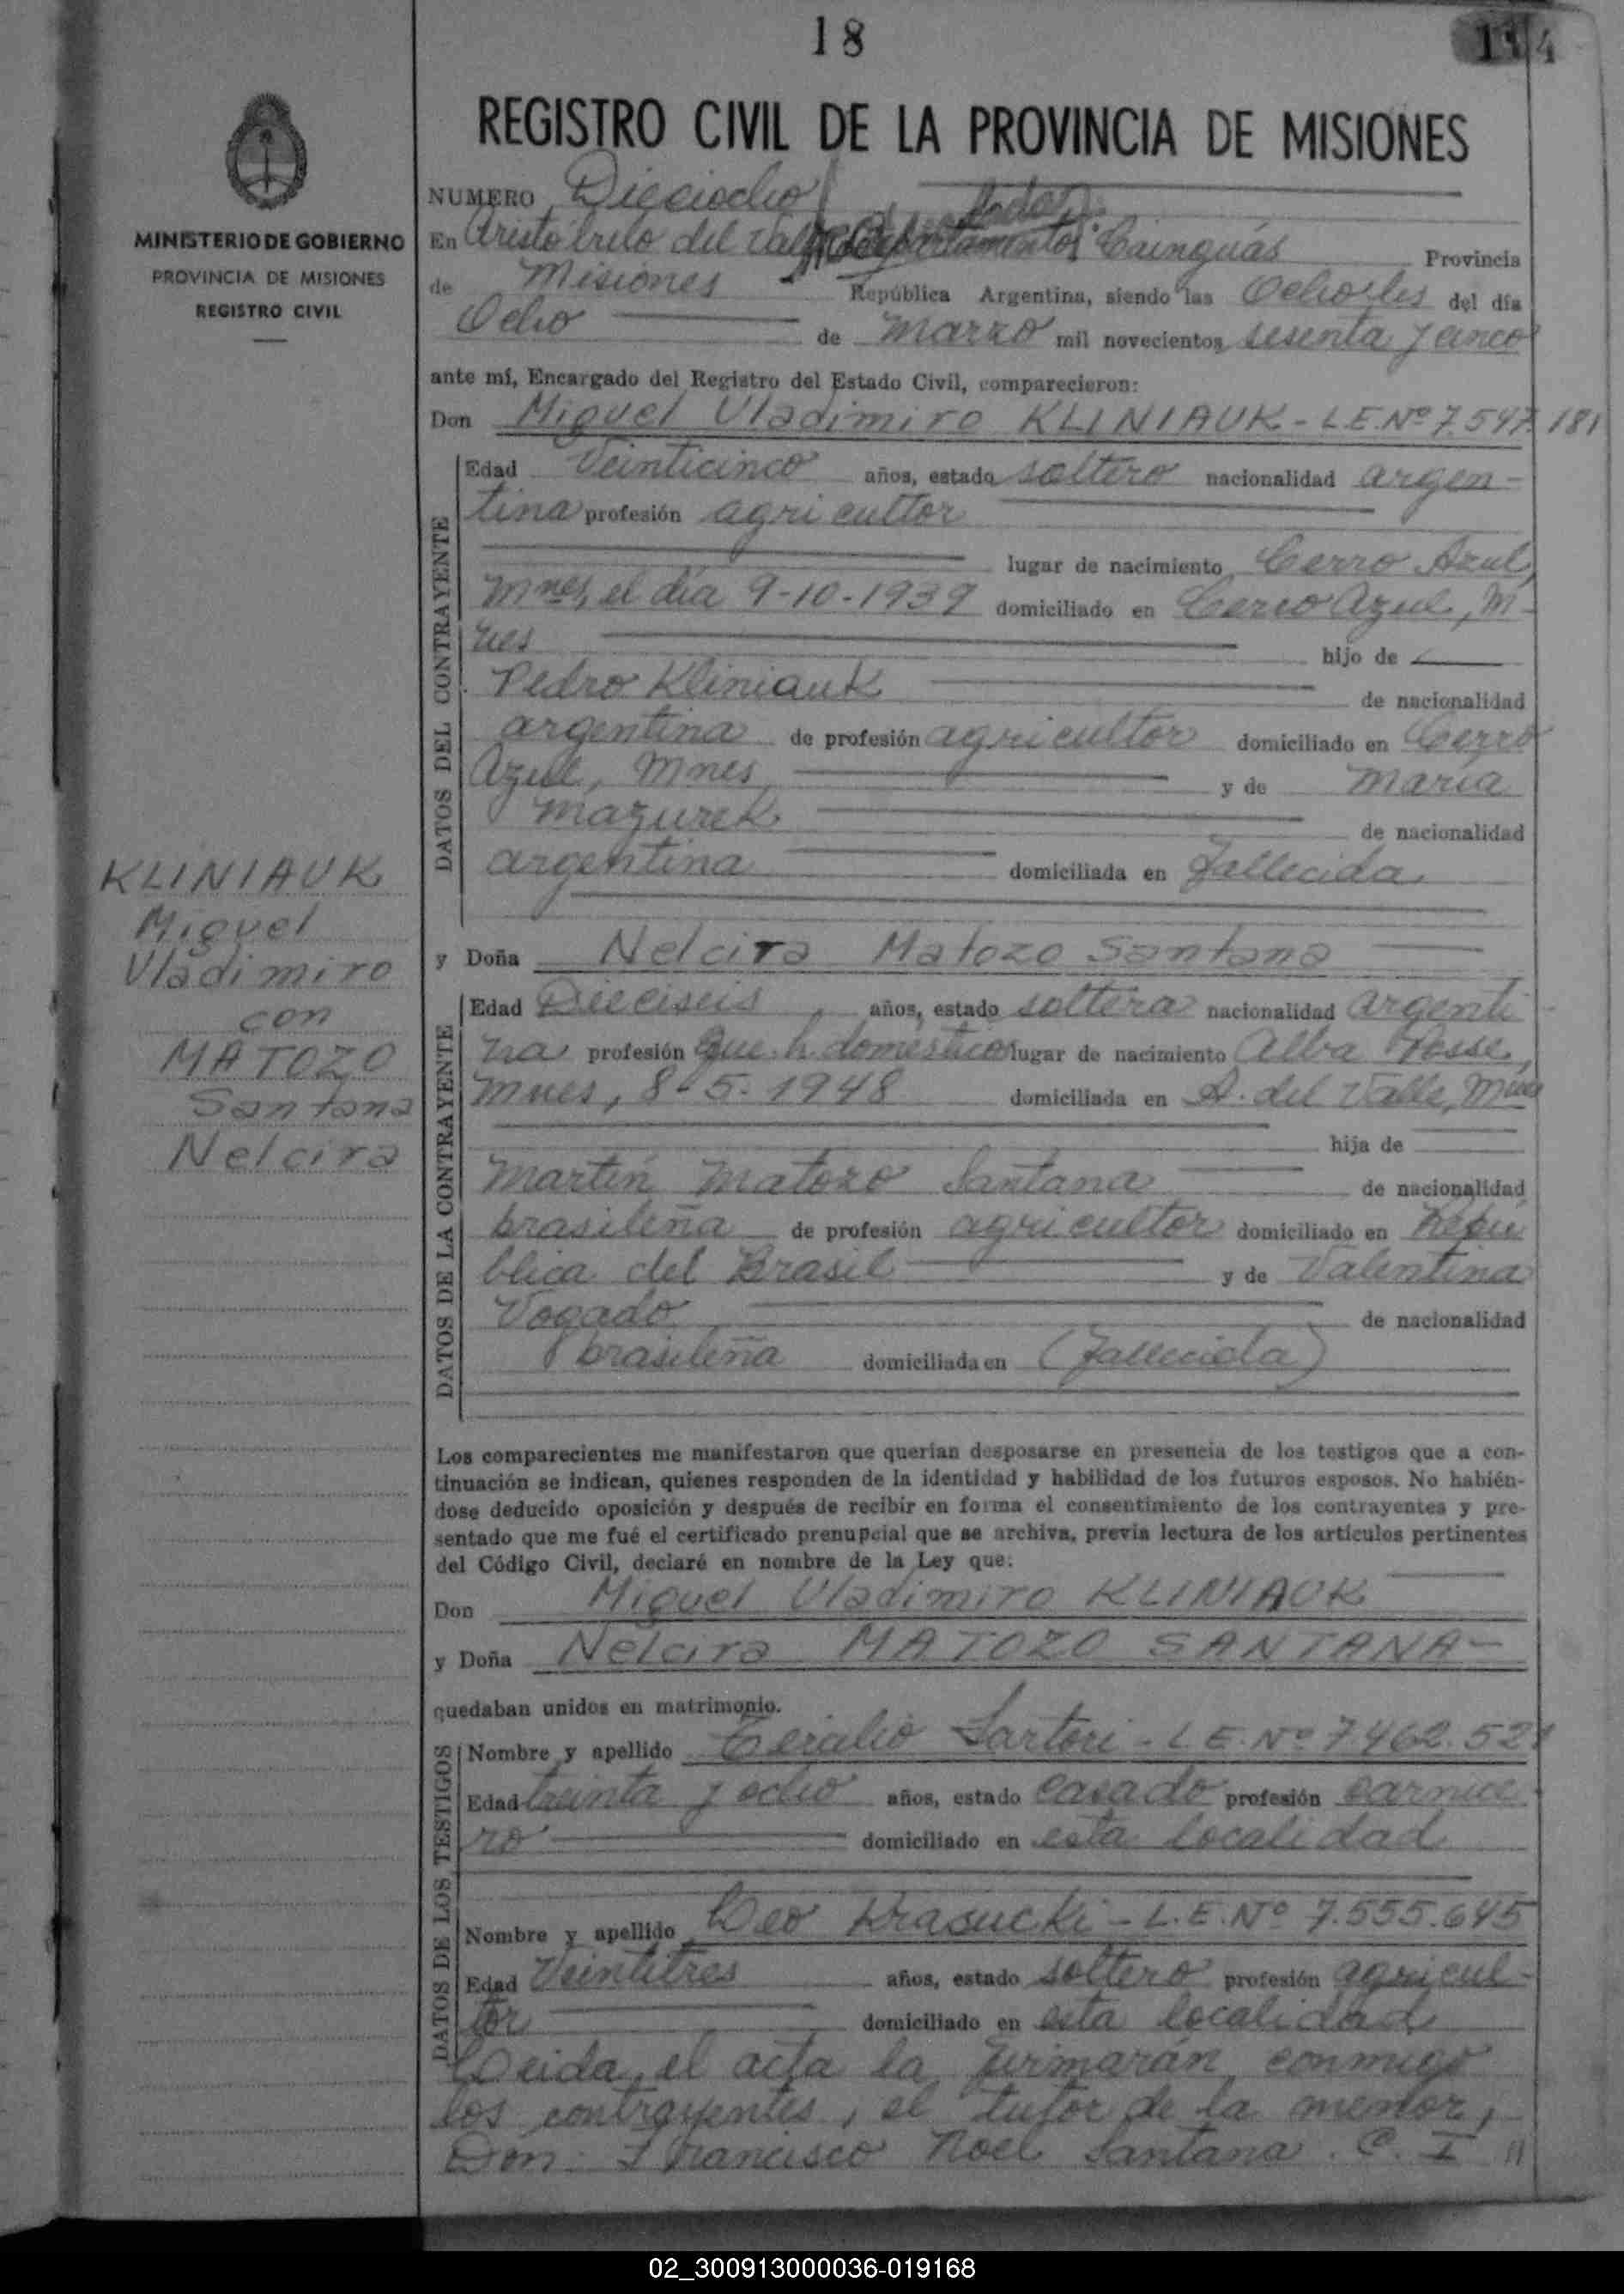 18
114
REGISTRO CIVIL DE LA PROVINCIA DE MISIONES
MINISTERIO DE GOBIERNO
PROVINCIA DE MISIONES
REGISTRO CIVIL
NUMERO Dieciocho
En Aristóbulo del Valle Departamento Cainguás Provincia
de Misiones República Argentina, siendo las Ocho hs del día
Ocho de Marzo mil novecientos sesenta y cinco
ante mí, Encargado del Registro del Estado Civil, comparecieron:
Don Miguel Vladimiro KLINIAUK - L.E. Nº 7.547.181
DATOS DEL CONTRAYENTE
Edad Veinticinco años, estado soltero nacionalidad argen-
tina profesión agricultor
lugar de nacimiento Cerro Azul,
Mnes, el día 9-10-1939 domiciliado en Cerro Azul, M-
nes hijo de
Pedro Kliniauk de nacionalidad
argentina de profesión agricultor domiciliado en Cerro
Azul, Mnes y de María
Mazurek de nacionalidad
argentina domiciliada en fallecida
y Doña Nelcira Matozo Santana
DATOS DE LA CONTRAYENTE
Edad Dieciseis años, estado soltera nacionalidad argenti
na profesión que h. domésticos lugar de nacimiento Alba Posse,
Mnes, 8-5-1948 domiciliada en A. del Valle, Mnes
hija de
Martín Matozo Santana de nacionalidad
brasileña de profesión agricultor domiciliado en Repú
blica del Brasil y de Valentina
Vogado de nacionalidad
brasileña domiciliada en (fallecida)
Los comparecientes me manifestaron que querían desposarse en presencia de los testigos que a con-
tinuación se indican, quienes responden de la identidad y habilidad de los futuros esposos. No habién-
dose deducido oposición y después de recibir en forma el consentimiento de los contrayentes y pre-
sentado que me fué el certificado prenupcial que se archiva, previa lectura de los artículos pertinentes
del Código Civil, declaré en nombre de la Ley que:
Don Miguel Vladimiro KLINIAUK
y Doña Nelcira MATOZO SANTANA-
quedaban unidos en matrimonio.
DATOS DE LOS TESTIGOS
Nombre y apellido Sartori - L.E. Nº 7.462.521
Edad treinta y ocho años, estado casado profesión carnice
ro domiciliado en esta localidad
Nombre y apellido Leo Krasucki - L.E. Nº 7.555.645
Edad Veintitres años, estado soltero profesión agricul-
tor domiciliado en esta localidad
Leida el acta la firmarán conmigo
los contrayentes, el tutor de la menor,
Don Francisco Noel Santana. C. I //
KLINIAUK
Miguel
Vladimiro
con
MATOZO
Santana
Nelcira
02_300913000036-019168